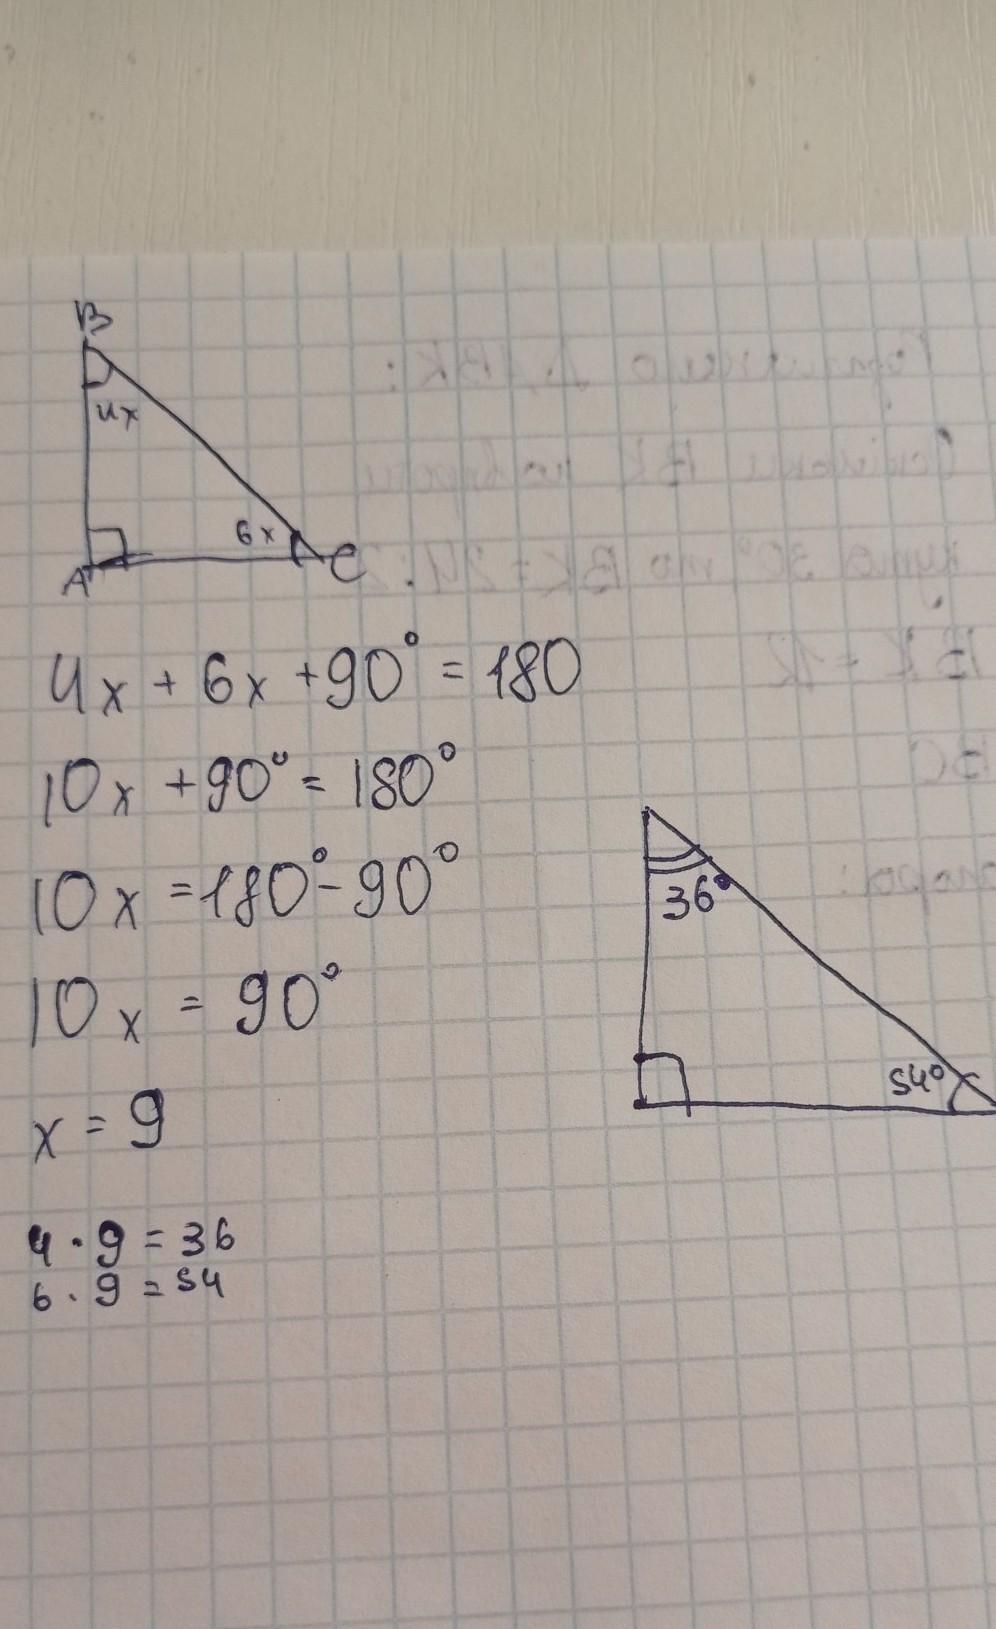 B
4x
6x
A
C
4x + 6x + 90° = 180
10x + 90° = 180°
10x = 180° - 90°
10x = 90°
x = 9
36°
54°
4 · 9 = 36
6 · 9 = 54